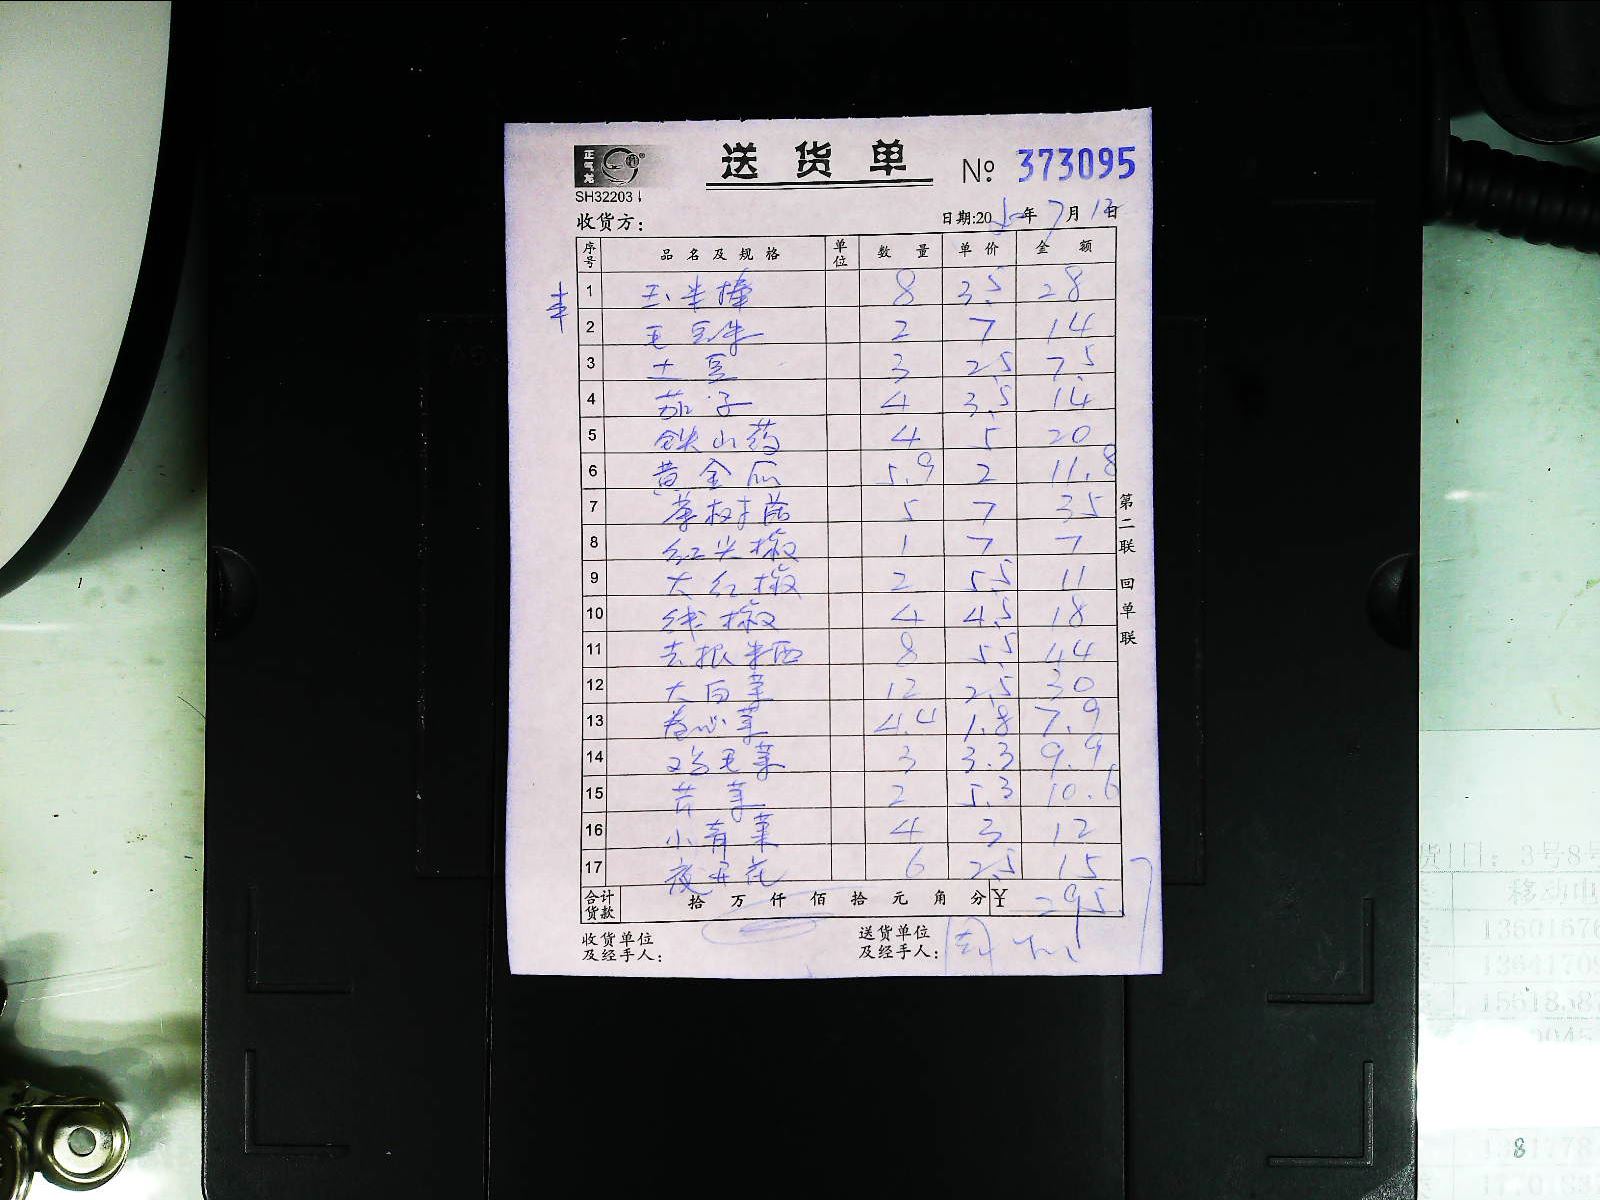 正气龙
送货单 № 373095
SH32203
收货方：
日期:20 年7月12日
序号 品名及规格 单位 数量 单价 金额
丰
1 玉米棒 8 3.5 28
2 毛豆米 2 7 14
3 土豆 3 2.5 7.5
4 茄子 4 3.5 14
5 铁山药 4 5 20
6 黄金瓜 5.9 2 11.8
7 茶树菇 5 7 35
8 红尖椒 1 7 7
9 大红椒 2 5.5 11
10 线椒 4 4.5 18
11 去根米西 8 5.5 44
12 大白菜 12 2.5 30
13 卷心菜 4.4 1.8 7.9
14 鸡毛菜 3 3.3 9.9
15 苦菜 2 5.3 10.6
16 小青菜 4 3 12
17 夜开花 6 2.5 15
合计货款 拾万仟佰拾元角分 ¥ 295.7
收货单位及经手人：
送货单位及经手人：
第二联 回单联
货 日：3号8号
移动电
8